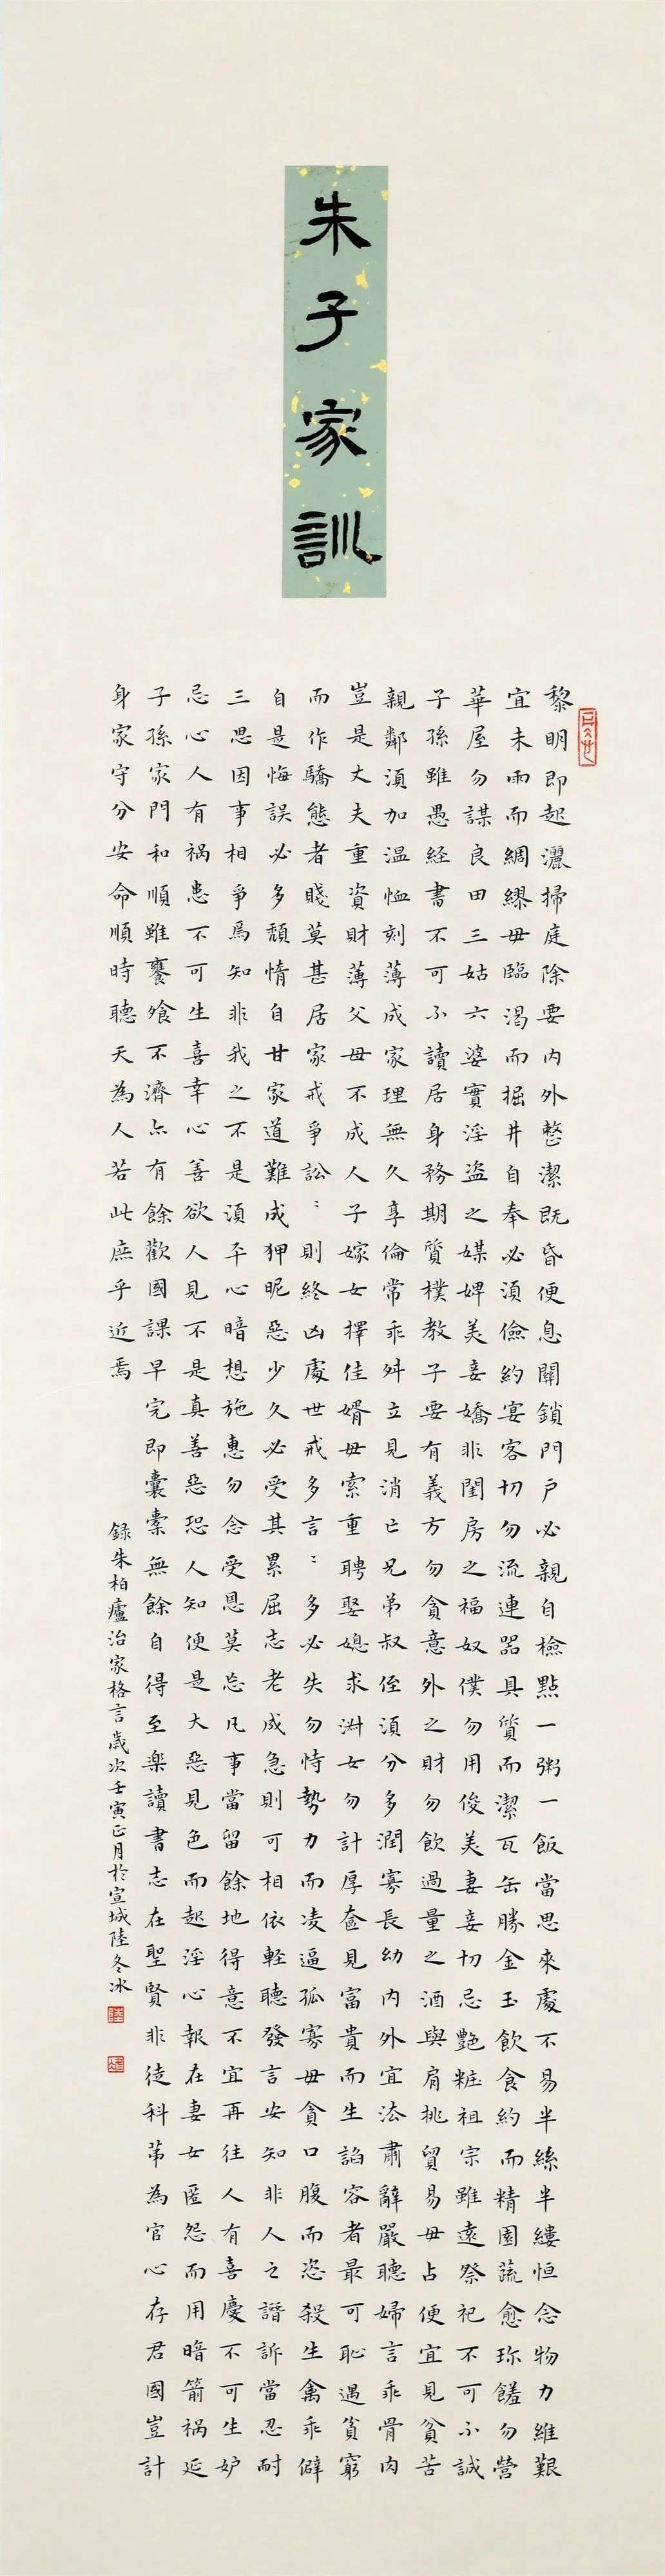 朱子家訓
黎明即起灑掃庭除要內外整潔既昏便息關鎖門戶必親自檢點一粥一飯當思來處不易半絲半縷恒念物力維艱
宜未雨而綢繆毋臨渴而掘井自奉必須儉約宴客切勿流連器具質而潔瓦缶勝金玉飲食約而精園蔬愈珍饈勿營
華屋勿謀良田三姑六婆實淫盜之媒婢美妾嬌非閨房之福奴僕勿用俊美妻妾切忌艷粧祖宗雖遠祭祀不可不誠
子孫雖愚経書不可不讀居身務期質樸教子要有義方勿貪意外之財勿飲過量之酒與肩挑貿易毋占便宜見貧苦
親鄰須加温恤刻薄成家理無久享倫常乖舛立見消亡兄弟叔侄須分多潤寡長幼內外宜法肅辭嚴聽婦言乖骨肉
豈是丈夫重資財薄父母不成人子嫁女擇佳婿毋索重聘娶媳求淑女勿計厚奩見富貴而生諂容者最可恥遇貧窮
而作驕態者賤莫甚居家戒爭訟〻則終凶處世戒多言〻多必失勿恃勢力而凌逼孤寡毋貪口腹而恣殺生禽乖僻
自是悔誤必多頹惰自甘家道難成狎昵惡少久必受其累屈志老成急則可相依軽聽發言安知非人之譖訴當忍耐
三思因事相爭焉知非我之不是須平心暗想施惠勿念受恩莫忘凡事當留餘地得意不宜再往人有喜慶不可生妒
忌心人有禍患不可生喜幸心善欲人見不是真善惡恐人知便是大惡見色而起淫心報在妻女匿怨而用暗箭禍延
子孫家門和順雖饔飧不濟亦有餘歡國課早完即囊橐無餘自得至樂讀書志在聖賢非徒科第為官心存君國豈計
身家守分安命順時聽天為人若此庶乎近焉
録朱柏廬治家格言歲次壬寅正月於宣城陸冬冰